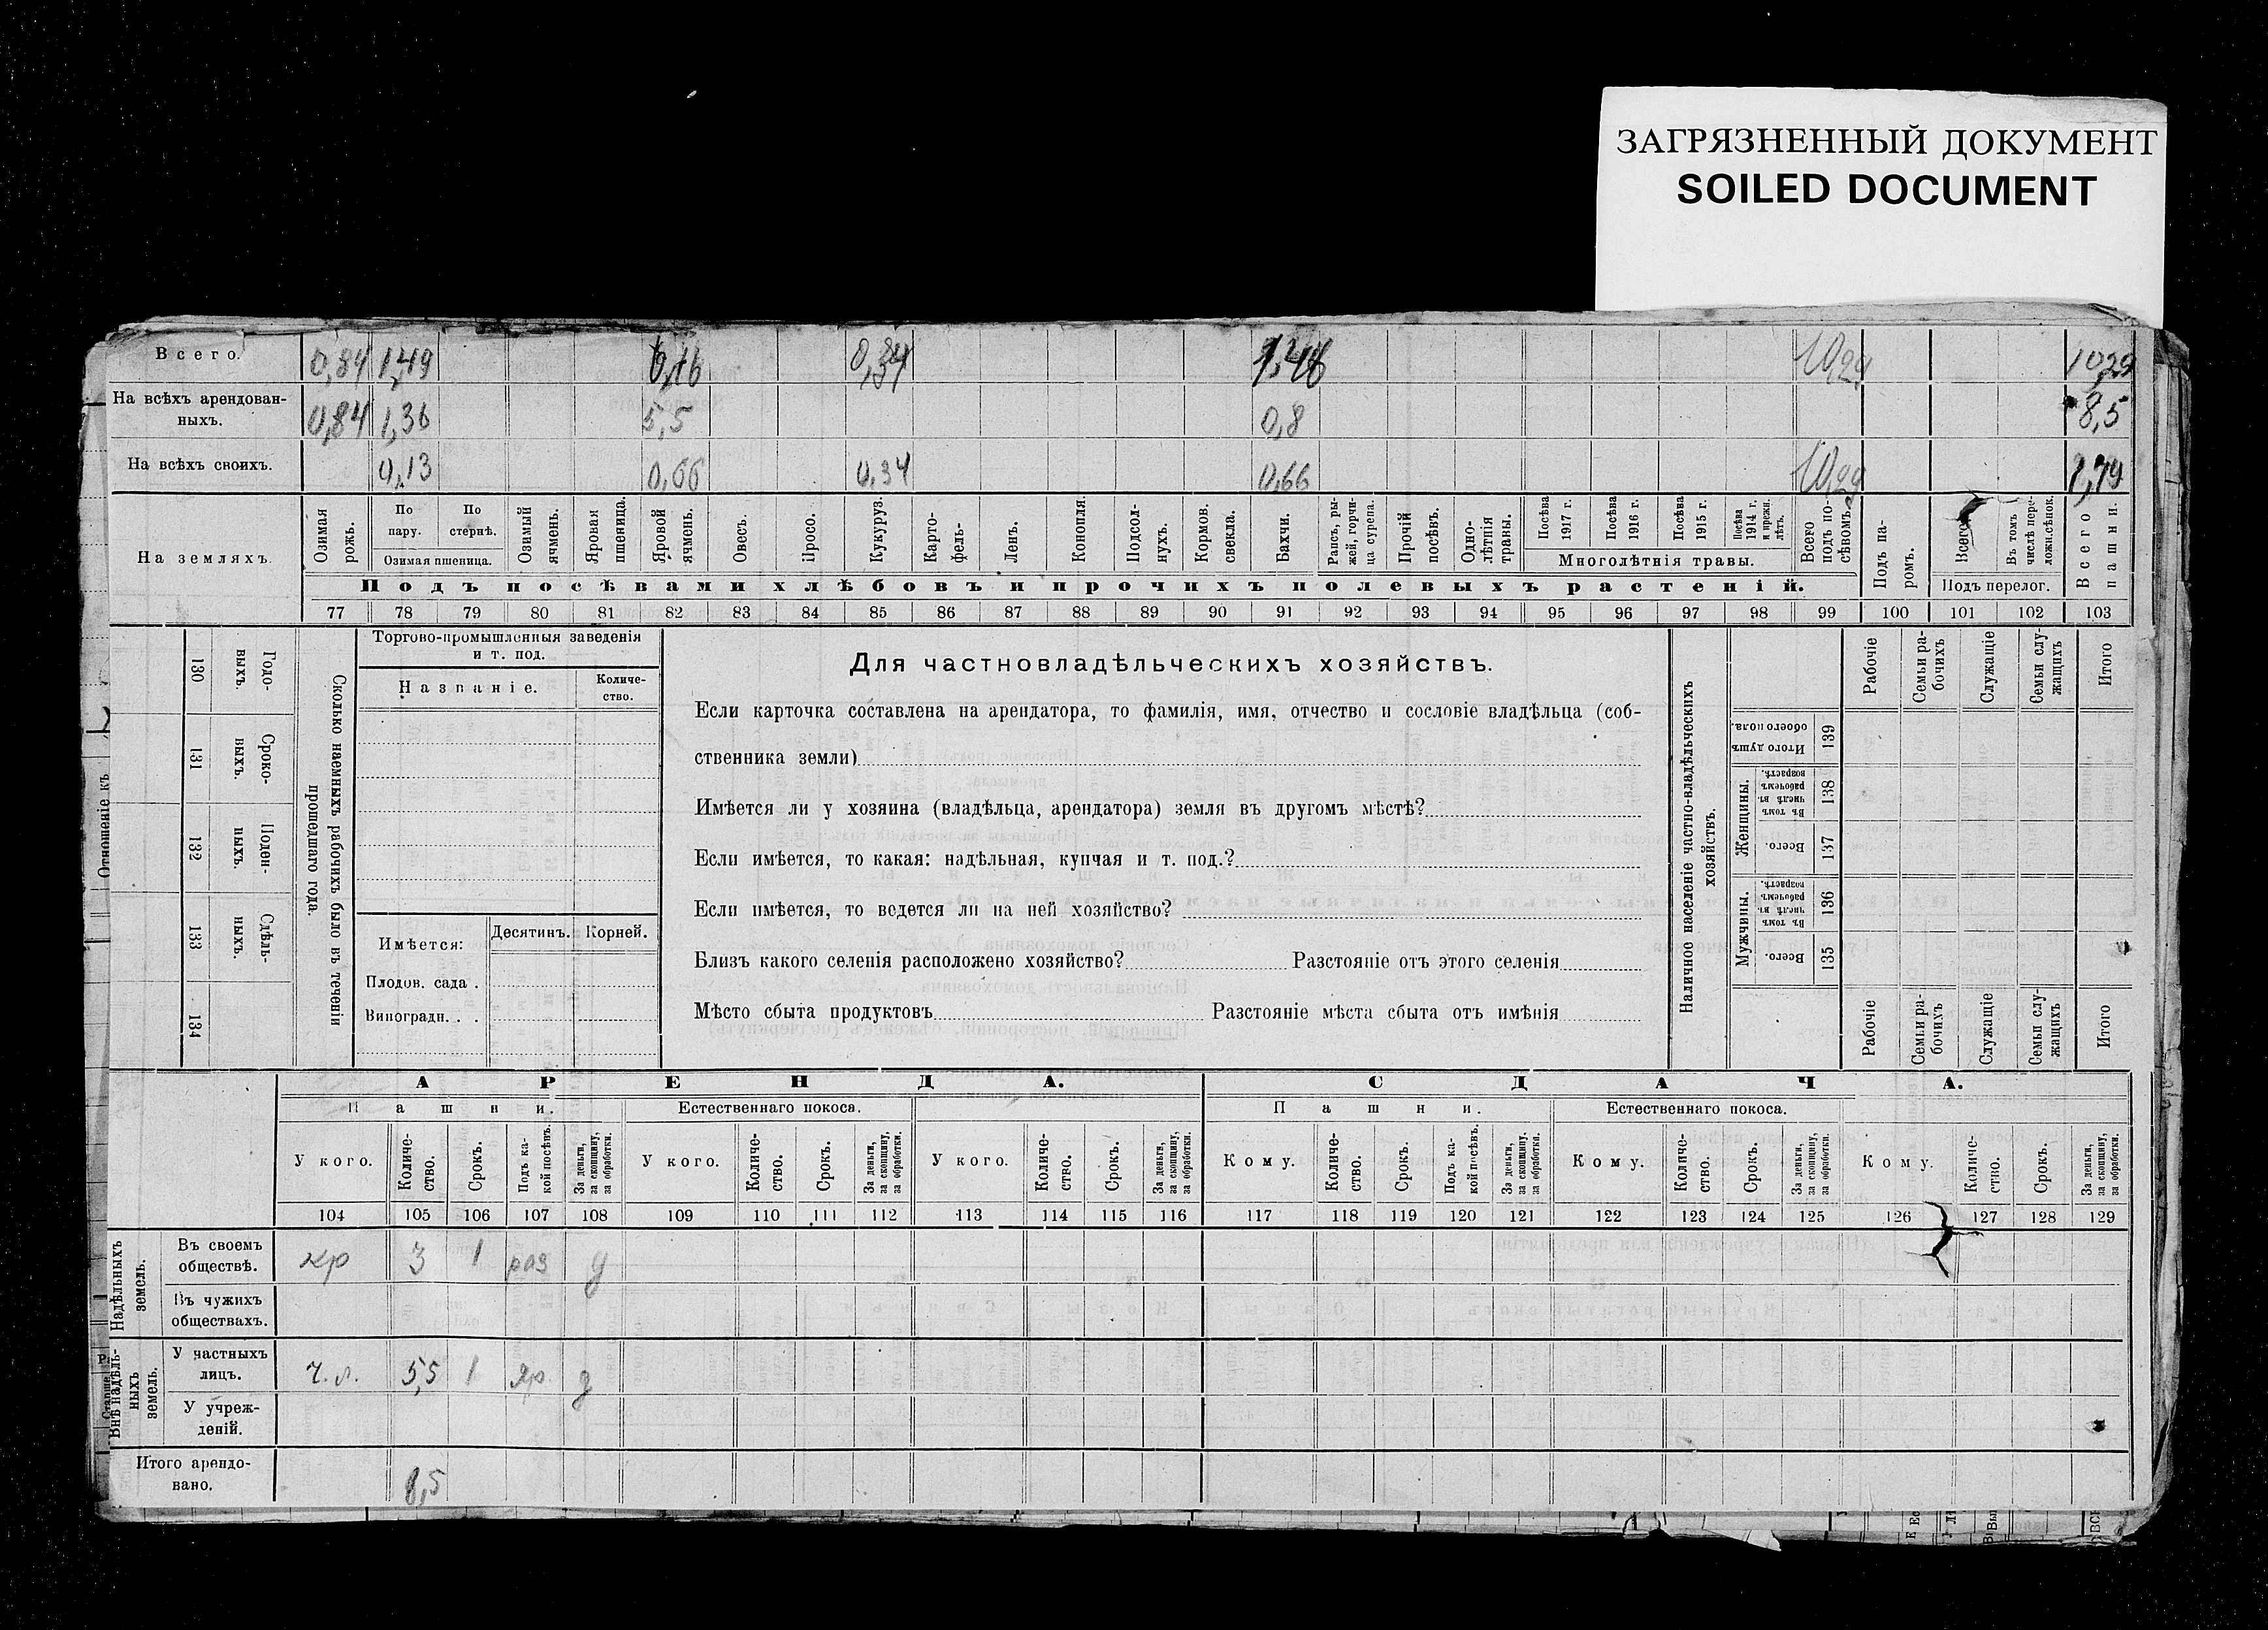 ЗАГРЯЗНЕННЫЙ ДОКУМЕНТ
SOILED DOCUMENT
Всего. 0,84 1,49 6,16 0,34 1,46 10,29 10,29
На всѣхъ арендован-
ныхъ. 0,84 1,36 5,5 0,8 8,5
На всѣхъ своихъ. 0,13 0,66 0,34 0,66 10,29 1,79
На земляхъ.
Озимая рожь.
По пару.
По стернѣ.
Озимая пшеница.
Озимый ячмень.
Яровая пшеница.
Яровой ячмень.
Овесъ.
Просо.
Кукуруз.
Карто-
фель-
Ленъ.
Конопля.
Подсол-
нухъ.
Кормов.
свекла.
Бахчи.
Рапсъ, ры-
жей, горчи-
ца сурепа.
Прочій
посѣвъ.
Одно-
лѣтнія
травы.
Посѣва 1917 г.
Посѣва 1916 г.
Посѣва 1915 г.
Посѣва 1914 г. и прежн. лѣтъ.
Многолѣтнія травы.
Всего
подъ по-
сѣвомъ.
Подъ па-
ромъ.
Всего
Въ томъ
числѣ пере-
ложн. сѣнок.
Подъ перелог.
Всего
пашни.
Подъ посѣвами хлѣбовъ и прочихъ полевыхъ растеній.
77 78 79 80 81 82 83 84 85 86 87 88 89 90 91 92 93 94 95 96 97 98 99 100 101 102 103
Отношеніе къ
130 Годо-
выхъ.
131 Сроко-
выхъ.
132 Поден-
ныхъ.
133 Сдѣль-
ныхъ.
134
Сколько наемныхъ рабочихъ было въ теченіи
прошедшаго года.
Торгово-промышленныя заведенія
и т. под.
Названіе.
Количе-
ство.
Имѣется:
Десятинъ. Корней.
Плодов. сада .
Виноградн. . .
Для частновладѣльческихъ хозяйствъ.
Если карточка составлена на арендатора, то фамилія, имя, отчество и сословіе владѣльца (соб-
ственника земли)
Имѣется ли у хозяина (владѣльца, арендатора) земля въ другомъ мѣстѣ?
Если имѣется, то какая: надѣльная, купчая и т. под.?
Если имѣется, то ведется ли на ней хозяйство?
Близъ какого селенія расположено хозяйство? Разстояніе отъ этого селенія
Мѣсто сбыта продуктовъ Разстояніе мѣста сбыта отъ имѣнія
Наличное населеніе частно-владѣльческихъ
хозяйствъ.
Рабочіе
Семьи ра-
бочихъ
Служащіе
Семьи слу-
жащихъ
Итого
Итого душъ
обоего пола.
139
Женщины.
Въ томъ
числѣ въ
рабочемъ
возрастѣ.
138
Всего.
137
Мужчины.
Въ томъ
числѣ въ
рабочемъ
возрастѣ.
136
Всего.
135
Рабочіе
Семьи ра-
бочихъ
Служащіе
Семьи слу-
жащихъ
Итого
АРЕНДА. СДАЧА.
Пашни. Естественнаго покоса. Пашни. Естественнаго покоса.
У кого.
Количе-
ство.
Срокъ.
Подъ ка-
кой посѣвъ.
За деньги,
за скопщину,
за обработки.
У кого.
Количе-
ство.
Срокъ.
За деньги,
за скопщину,
за обработки.
У кого.
Количе-
ство.
Срокъ.
За деньги,
за скопщину,
за обработки.
Кому.
Количе-
ство.
Срокъ.
Подъ ка-
кой посѣвъ.
За деньги,
за скопщину,
за обработки.
Кому.
Количе-
ство.
Срокъ.
За деньги,
за скопщину,
за обработки.
Кому.
Количе-
ство.
Срокъ.
За деньги,
за скопщину,
за обработки.
104 105 106 107 108 109 110 111 112 113 114 115 116 117 118 119 120 121 122 123 124 125 126 127 128 129
Надѣльныхъ
земель.
Въ своемъ
обществѣ. кр 3 1 раз д
Въ чужихъ
обществахъ.
Внѣ надѣль-
ныхъ
земель.
У частныхъ
лицъ. ч. л. 5,5 1 яр. д
У учреж-
деній.
Итого арендо-
вано. 8,5